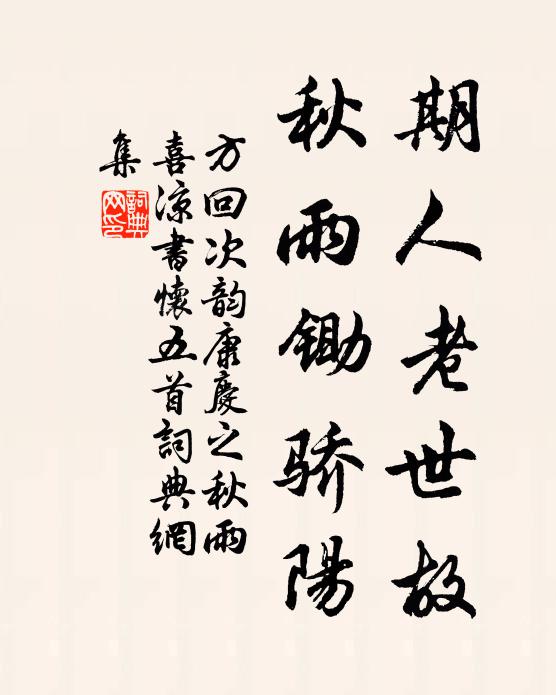 期人老世故
秋雨锄骄陽
方回次韵康慶之秋雨
喜凉書懷五首詞典網
集
詞典网印